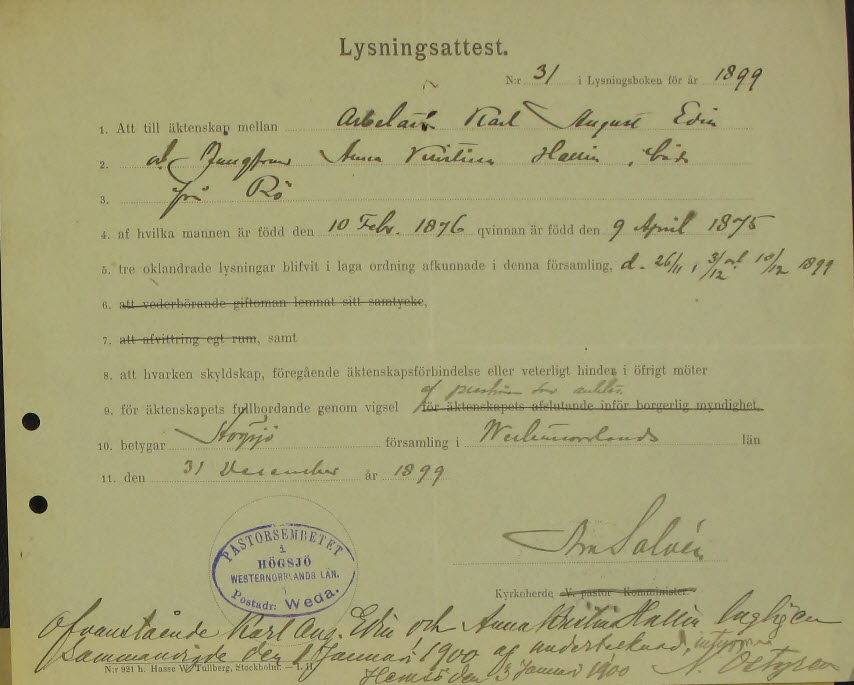 Lysningsattest.
N:r 31 i Lysningsboken för år 1899
1. Att till äktenskap mellan Arbetaren Karl August Edin
2. och Jungfrun Anna Kristina Hallin, båda
3. från Rö
4. af hvilka mannen är född den 10 Febr. 1876 qvinnan är född den 9 April 1875
5. tre oklandrade lysningar blifvit i laga ordning afkunnade i denna församling, d. 26/11, 3/12 och 10/12 1899
6. att vederbörande giftoman lemnat sitt samtycke,
7. att afvittring egt rum, samt
8. att hvarken skyldskap, föregående äktenskapsförbindelse eller veterligt hinder i öfrigt möter
9. för äktenskapets fullbordande genom vigsel för äktenskapets afslutande inför borgerlig myndighet,
10. betygar Högsjö församling i Westernorrlands län
11. den 31 December år 1899
Salvén
Kyrkoherde V. pastor Komminister.
PASTORSEMBETET
i
HÖGSJÖ
WESTERNORRLANDS LÄN.
Postadr: Weda.
Ofvanstående Karl Aug. Edin och Anna Kristina Hallin lagligen
sammanvigde den 1 Januari 1900 af undertecknad, intygas
Hemsö den 3 Januari 1900
N:r 921 h. Hasse W. Tullberg, Stockholm.